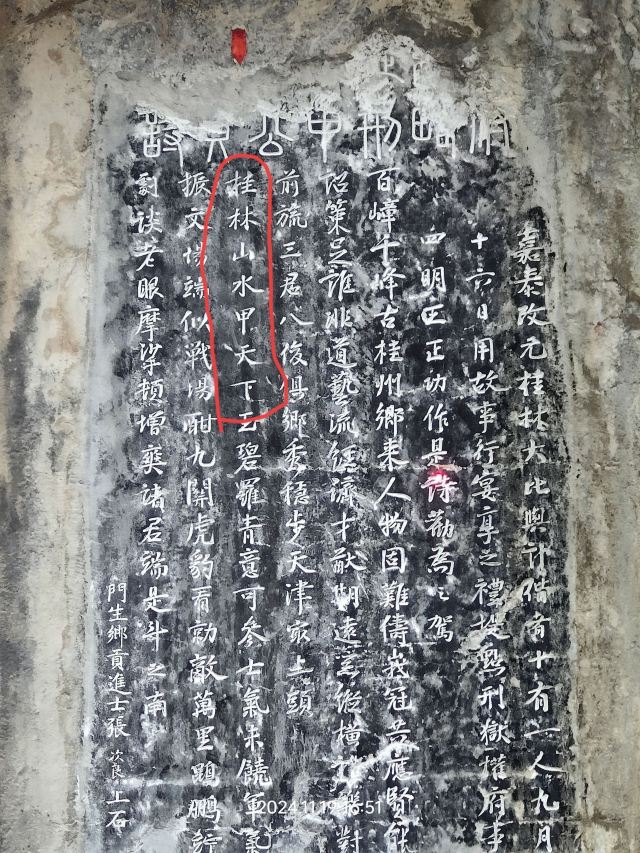 府刑中公詩
嘉泰改元桂林大比與計偕者十有一人九月
十六日用故事行宴享之禮提點刑獄權府事
四明王正功作是詩勸為之駕
百嶂千峰古桂州鄉來人物固難儔峩冠共應賢能
詔策足誰非道藝流經濟才猷期遠縱橫對
前旒三君八俊俱鄉秀穩步天津最上頭
桂林山水甲天下玉碧羅青意可參士氣未饒軍氣
振文場端似戰場酣九關虎豹看勍敵萬里鵾鵬佇
劇談老眼摩挲頓增爽諸君端是斗之南
門生鄉貢進士張次良上石
2024.11.19